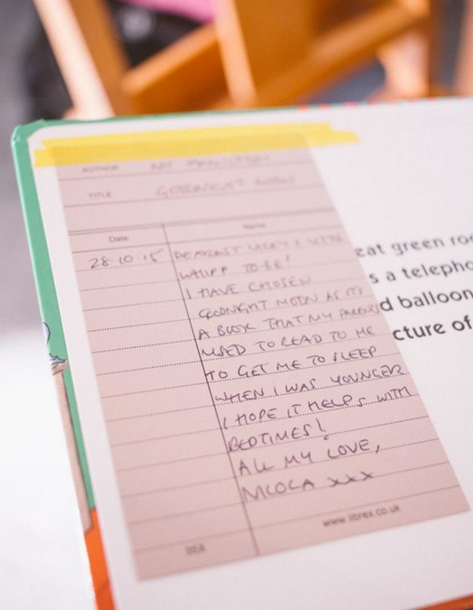 AUTHOR
TITLE GOODNIGHT MOON
Date Name
28.10.15 DEAREST LUCY & LITTLE
WHUPP TO-BE!
I HAVE CHOSEN
GOODNIGHT MOON AS IT'S
A BOOK THAT MY PARENTS
USED TO READ TO ME
TO GET ME TO SLEEP
WHEN I WAS YOUNGER
I HOPE IT HELPS WITH
BEDTIMES!
ALL MY LOVE,
NICOLA xxx
www.librex.co.uk
eat green roo
s a telepho
d balloon
cture of